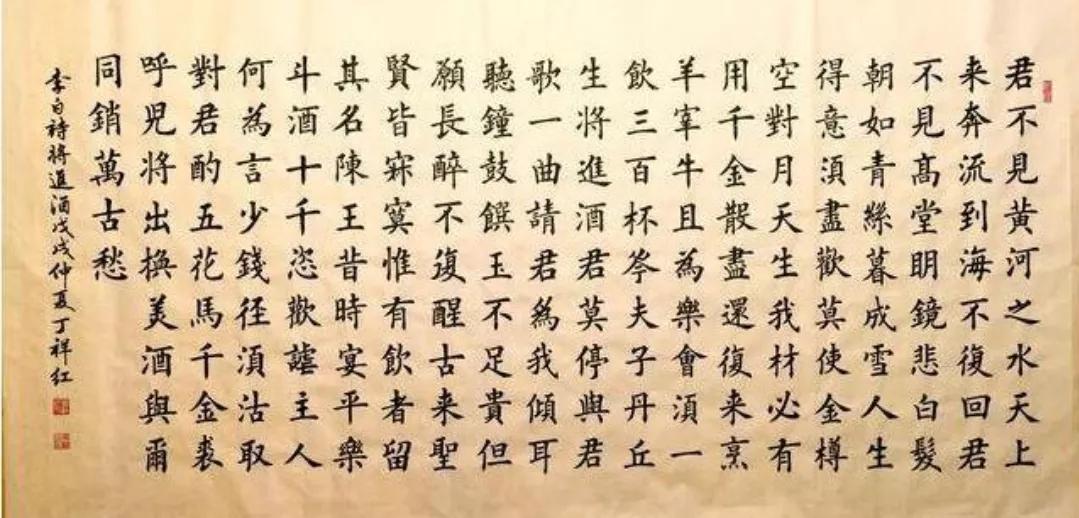 君不見黄河之水天上
来奔流到海不復回君
不見髙堂明鏡悲白髮
朝如青絲暮成雪人生
得意湏盡歡莫使金樽
空對月天生我材必有
用千金散盡還復来烹
羊宰牛且為樂會湏一
飲三百杯岑夫子丹丘
生將進酒君莫停與君
歌一曲請君爲我傾耳
聽鐘鼓饌玉不足貴但
願長醉不復醒古来聖
賢皆寂寞惟有飲者留
其名陳王昔時宴平樂
斗酒十千恣歡謔主人
何為言少錢径湏沽取
對君酌五花馬千金裘
呼兒將出換美酒與爾
同銷萬古愁
李白詩將進酒戊戌仲夏丁祥红